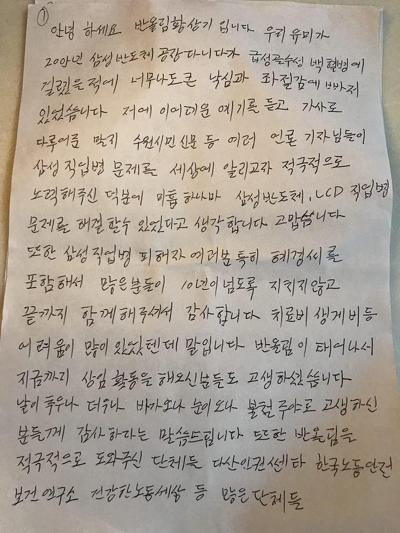 ①
안녕 하세요 반올림 황상기 입니다 우리 유미가
20아년 삼성반도체 공장 다니다가 급성골수성 백혈병에
걸렸을 적에 너무나도 큰 낙심과 좌절감에 빠저
있었습니다 저에 이어더운 예기를 듣고 기사로
다루어준 말지 수원시민신문 등 여러 언론 기자님들이
삼성 직업병 문제를 세상에 알리고자 적극적으로
노력해주신 덕분에 미흡하나마 삼성반도체, LCD 직업병
문제를 해결할수 있었다고 생각합니다 고맙습니다
또한 삼성직업병 피해자 여러분 특히 혜경씨를
포함해서 많은분들이 10년이 넘도록 지치지않고
끝까지 함께해주셔서 감사합니다 치료비 생계비등
어려움이 많이 있었텐데 말입니다 반올림이 태어나서
지금까지 상임 활동을 해오신분들도 고생하셨습니다
날이 추우나 더우나 비가오나 눈이오나 불철주야로 고생하신
분들게 감사하다는 말씀드립니다 또한 반올림을
적극적으로 도와주신 단체들 다산인권쎈타 한국노동안전
보건연구소 건강한노동세상 등 많은단체들